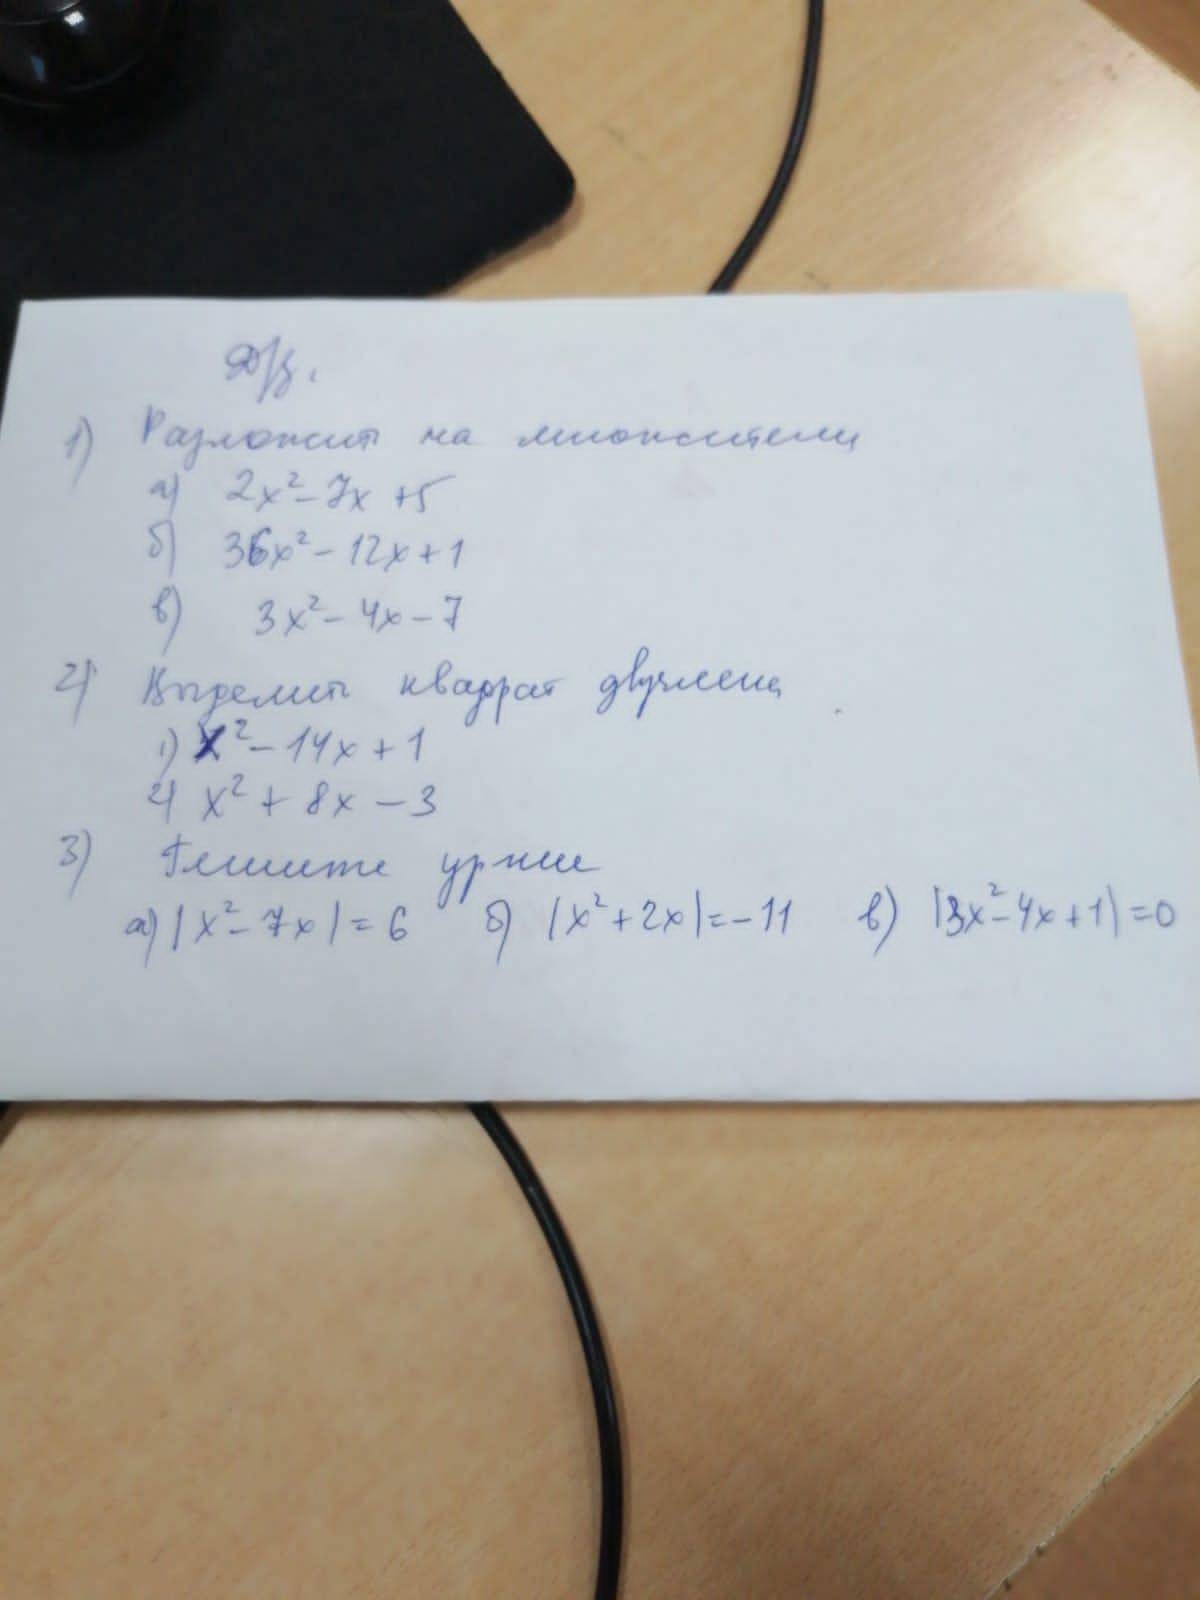 Д/з.
1) Разложить на множители
а) 2x² - 7x + 5
б) 36x² - 12x + 1
в) 3x² - 4x - 7
2) Выделить квадрат двучлена
1) x² - 14x + 1
2) x² + 8x - 3
3) Решите ур-ния
а) |x² - 7x| = 6 б) |x² + 2x| = -11 в) |3x² - 4x + 1| = 0